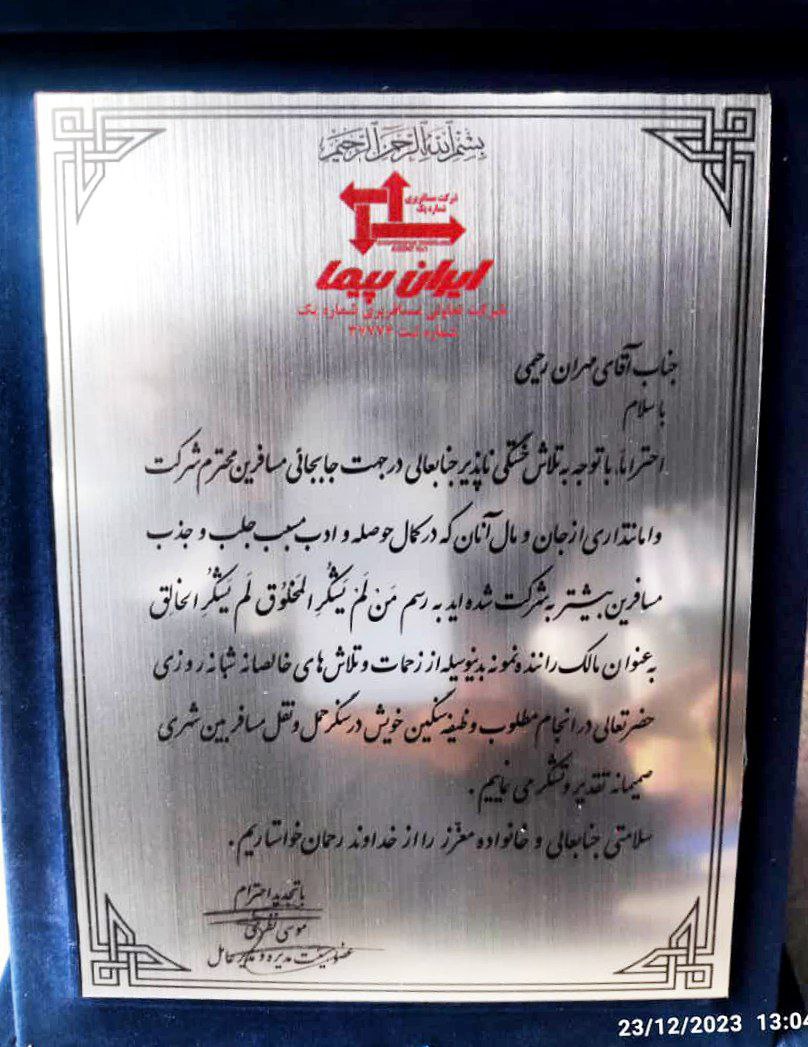 بسم الله الرحمن الرحیم
شرکت مسافربری
شماره یک
ایران پیما
شرکت تعاونی مسافربری شماره یک
شماره ثبت ۳۷۷۷۴
جناب آقای مهران رحیمی
با سلام
احتراماً، با توجه به تلاش خستگی ناپذیر جنابعالی در جهت جابجائی مسافرین محترم شرکت
و امانتداری از جان و مال آنان که در کمال حوصله و ادب مسبب جلب و جذب
مسافرین بیشتر به شرکت شده اید به رسم مَن لَم یَشکُرِ المَخلوُق لَم یَشکُرِ الخالِق
به عنوان مالک راننده نمونه بدینوسیله از زحمات و تلاش های خالصانه شبانه روزی
حضرتعالی در انجام مطلوب وظیفه سنگین خویش در سنگر حمل و نقل مسافر بین شهری
صمیمانه تقدیر و تشکر می نماییم .
سلامتی جنابعالی و خانواده معزّز را از خداوند رحمان خواستاریم .
با تجدید احترام
موسی
عضو هیئت مدیره و مدیر عامل
23/12/2023 13:04